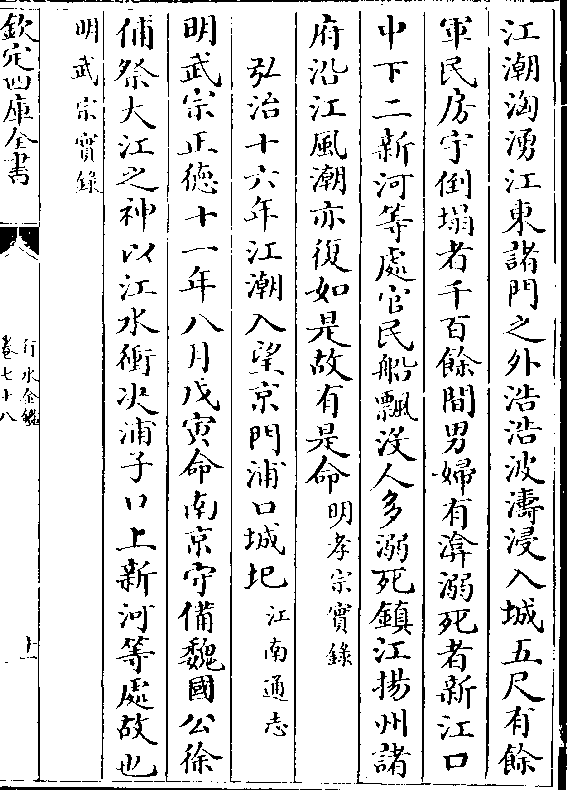 江潮洶湧江東諸門之外浩浩波濤浸入城五尺有餘
軍民房宇倒塌者千百餘間男婦有渰溺死者新江口
中下二新河等處官民船飄没人多溺死鎮江揚州諸
府沿江風潮亦復如是故有是命明孝宗實錄
弘治十六年江潮入望京門浦口城圮江南通志
明武宗正德十一年八月戊寅命南京守備魏國公徐
俌祭大江之神以江水衝决浦子口上新河等處故也
明武宗實錄
欽定四庫全書
行水金鑑
卷七十八
十一